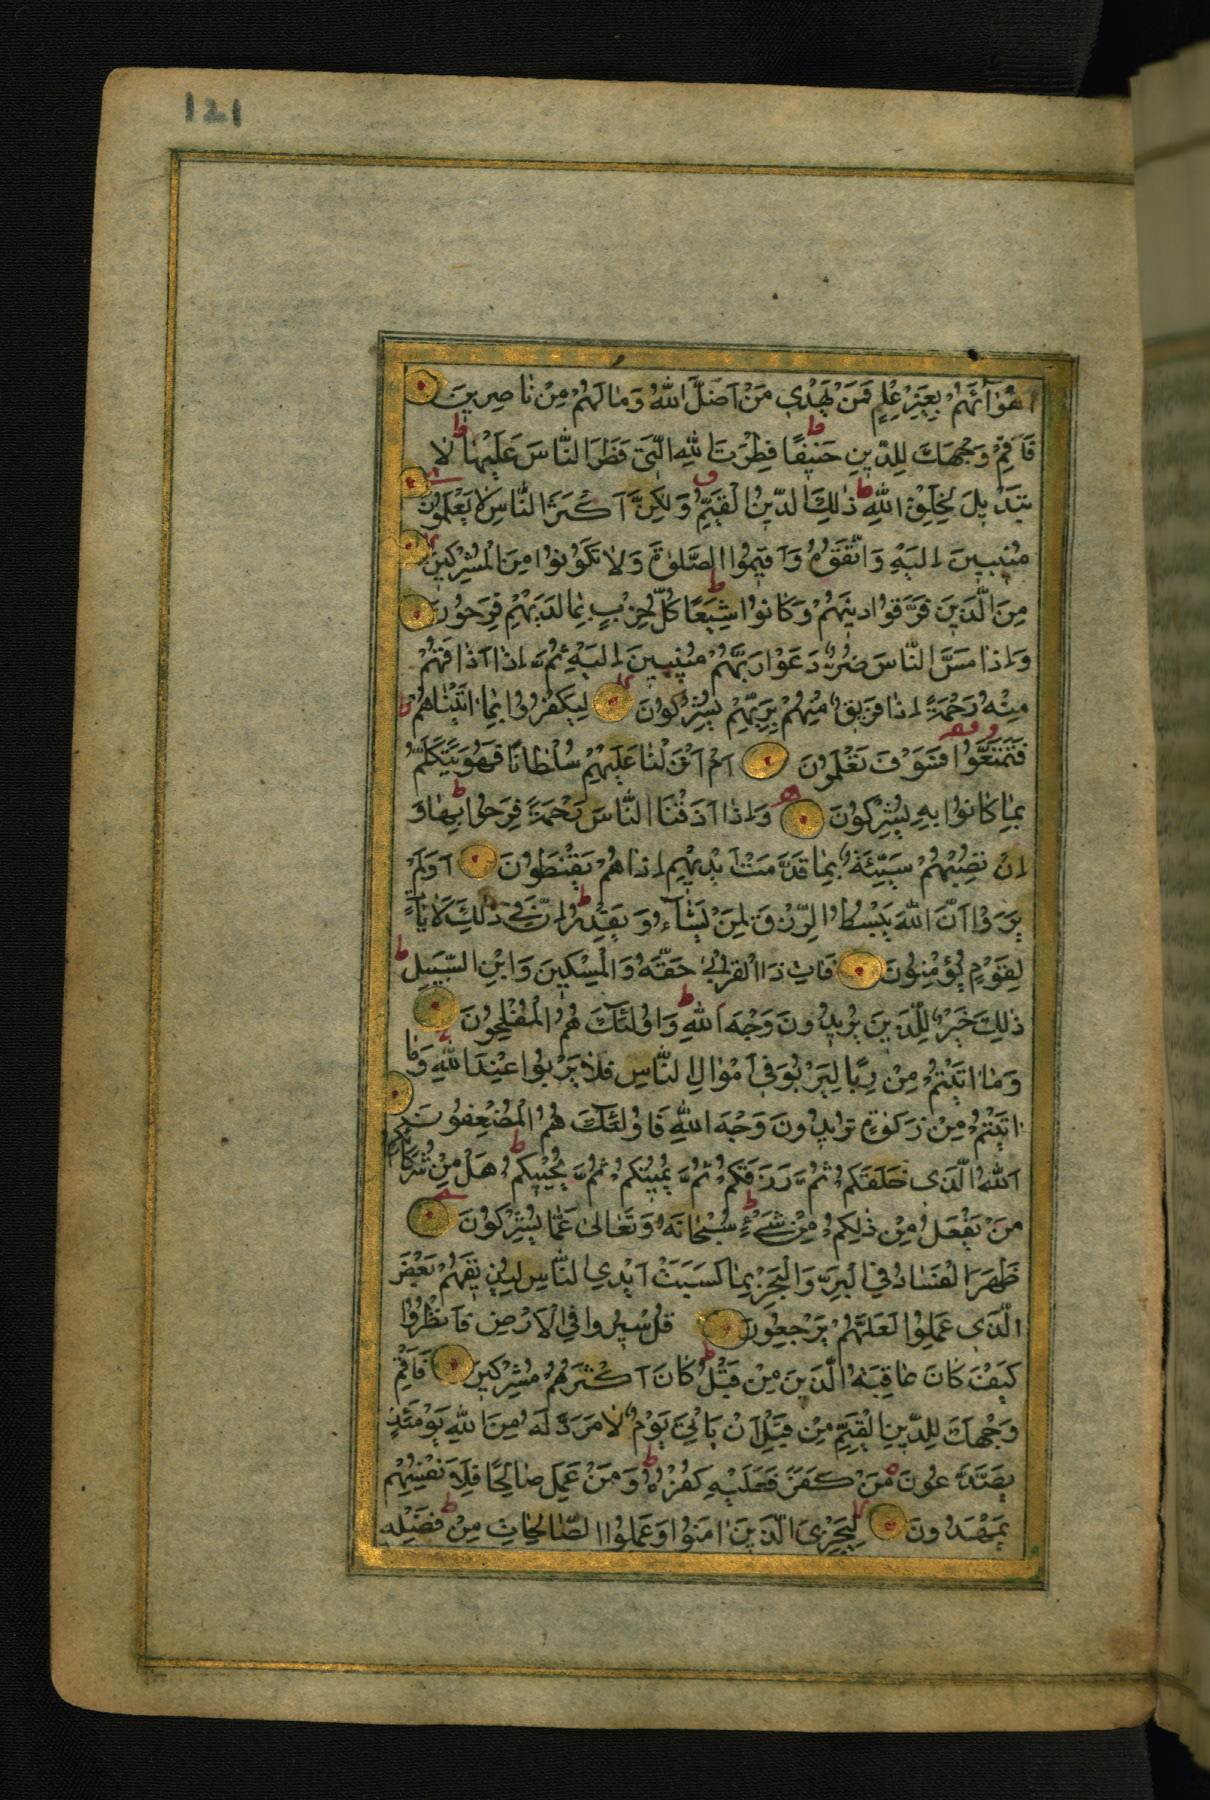 121
اَهْوٰآئَهُمْ بِغَيْرِ عِلْمٍ فَمَنْ يَهْدِي مَنْ اَضَلَّ اللّٰهُ وَمٰا لَهُمْ مِنْ نٰاصِرِينَ
فَاَقِمْ وَجْهَكَ لِلدِّينِ حَنِيفًا ط فِطْرَتَ اللّٰهِ الَّتِي فَطَرَ النّٰاسَ عَلَيْهٰا ط لٰا
تَبْدِيلَ لِخَلْقِ اللّٰهِ ط ذٰلِكَ الدِّينُ الْقَيِّمُ ق وَلٰكِنَّ اَكْثَرَ النّٰاسِ لٰا يَعْلَمُونَ
مُنِيبِينَ اِلَيْهِ وَاتَّقُوهُ وَاَقِيمُوا الصَّلٰوةَ وَلٰا تَكُونُوا مِنَ الْمُشْرِكِينَ
مِنَ الَّذِينَ فَرَّقُوا دِينَهُمْ وَكٰانُوا شِيَعًا ط كُلُّ حِزْبٍ بِمٰا لَدَيْهِمْ فَرِحُونَ
وَاِذٰا مَسَّ النّٰاسَ ضُرٌّ دَعَوْا رَبَّهُمْ مُنِيبِينَ اِلَيْهِ ثُمَّ اِذٰا اَذٰاقَهُمْ
مِنْهُ رَحْمَةً اِذٰا فَرِيقٌ مِنْهُمْ بِرَبِّهِمْ يُشْرِكُونَ لِيَكْفُرُوا بِمٰا اٰتَيْنٰاهُمْ
فَتَمَتَّعُوا فَسَوْفَ تَعْلَمُونَ اَمْ اَنْزَلْنٰا عَلَيْهِمْ سُلْطٰانًا فَهُوَ يَتَكَلَّمُ
بِمٰا كٰانُوا بِهِ يُشْرِكُونَ وَاِذٰا اَذَقْنَا النّٰاسَ رَحْمَةً فَرِحُوا بِهٰا ط وَ
اِنْ تُصِبْهُمْ سَيِّئَةٌ بِمٰا قَدَّمَتْ اَيْدِيهِمْ اِذٰا هُمْ يَقْنَطُونَ اَوَلَمْ
يَرَوْا اَنَّ اللّٰهَ يَبْسُطُ الرِّزْقَ لِمَنْ يَشٰآءُ وَيَقْدِرُ ط اِنَّ فِي ذٰلِكَ لَاٰيٰاتٍ
لِقَوْمٍ يُؤْمِنُونَ فَاٰتِ ذَا الْقُرْبىٰ حَقَّهُ وَالْمِسْكِينَ وَابْنِ السَّبِيلِ ط
ذٰلِكَ خَيْرٌ لِلَّذِينَ يُرِيدُونَ وَجْهَ اللّٰهِ ط وَاُولٰئِكَ هُمُ الْمُفْلِحُونَ
وَمٰا اٰتَيْتُمْ مِنْ رِبًا لِيَرْبُوَ فِي اَمْوٰالِ النّٰاسِ فَلٰا يَرْبُوا عِنْدَ اللّٰهِ وَمٰا
اٰتَيْتُمْ مِنْ زَكٰوةٍ تُرِيدُونَ وَجْهَ اللّٰهِ فَاُولٰئِكَ هُمُ الْمُضْعِفُونَ
اَللّٰهُ الَّذِي خَلَقَكُمْ ثُمَّ رَزَقَكُمْ ثُمَّ يُمِيتُكُمْ ثُمَّ يُحْيِيكُمْ ط هَلْ مِنْ شُرَكٰآئِكُمْ
مَنْ يَفْعَلُ مِنْ ذٰلِكُمْ مِنْ شَيْءٍ ط سُبْحٰانَهُ وَتَعٰالىٰ عَمّٰا يُشْرِكُونَ
ظَهَرَ الْفَسٰادُ فِي الْبَرِّ وَالْبَحْرِ بِمٰا كَسَبَتْ اَيْدِي النّٰاسِ لِيُذِيقَهُمْ بَعْضَ
الَّذِي عَمِلُوا لَعَلَّهُمْ يَرْجِعُونَ قُلْ سِيرُوا فِي الْاَرْضِ فَانْظُرُوا
كَيْفَ كٰانَ عٰاقِبَةُ الَّذِينَ مِنْ قَبْلُ ط كٰانَ اَكْثَرُهُمْ مُشْرِكِينَ فَاَقِمْ
وَجْهَكَ لِلدِّينِ الْقَيِّمِ مِنْ قَبْلِ اَنْ يَاْتِيَ يَوْمٌ لٰا مَرَدَّ لَهُ مِنَ اللّٰهِ يَوْمَئِذٍ
يَصَّدَّعُونَ مَنْ كَفَرَ فَعَلَيْهِ كُفْرُهُ ط وَمَنْ عَمِلَ صٰالِحًا فَلِاَنْفُسِهِمْ
يَمْهَدُونَ لِيَجْزِيَ الَّذِينَ اٰمَنُوا وَعَمِلُوا الصّٰالِحٰاتِ مِنْ فَضْلِهِ ط